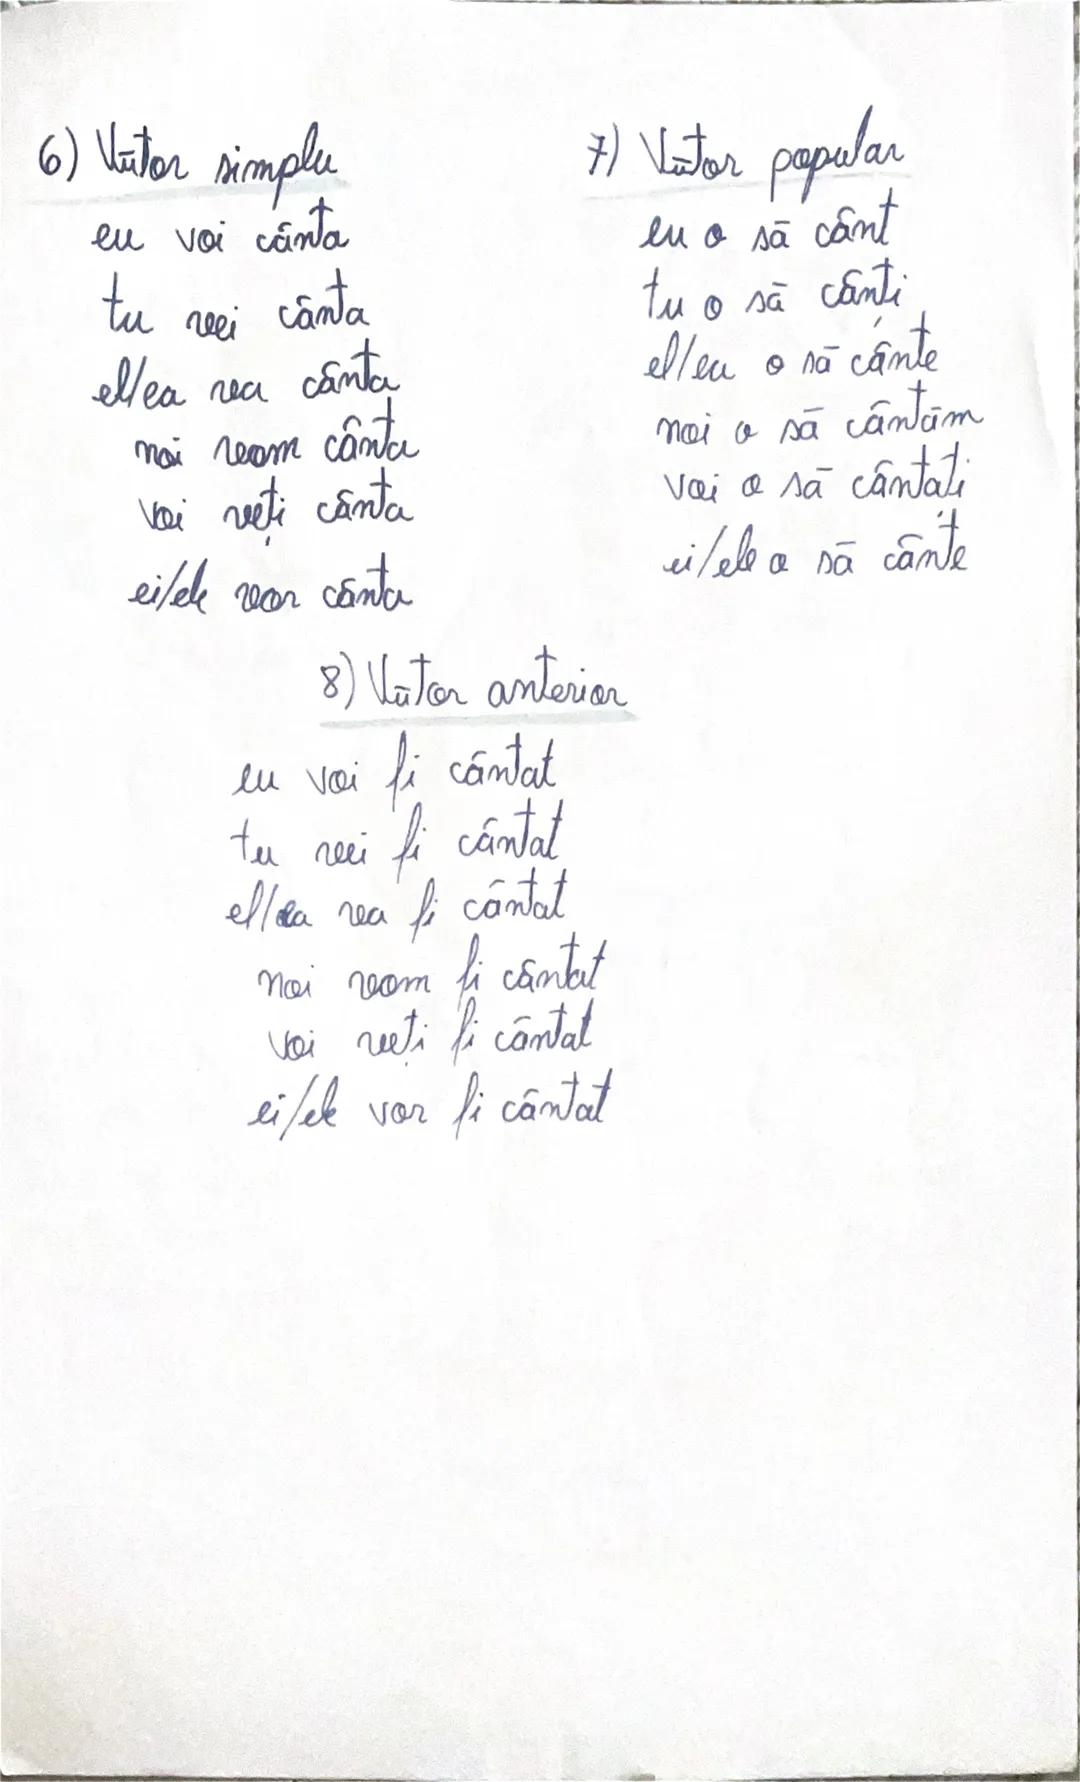 6) Viitor simplu
eu voi cânta
tu vei cânta
el/ea vea cânta
noi vom cânta
voi veți cânta
ei/ele vor cânta
7) Viitor popular
eu o să cânt
tu o să cânți
el/ea o să cânte
noi o să cântăm
voi o să cântați
ei/ele o să cânte
8) Viitor anterior
eu voi fi cântat
tu vei fi cântat
el/ea va fi cântat
noi vom fi cântat
voi veți fi cântat
ei/ele vor fi cântat